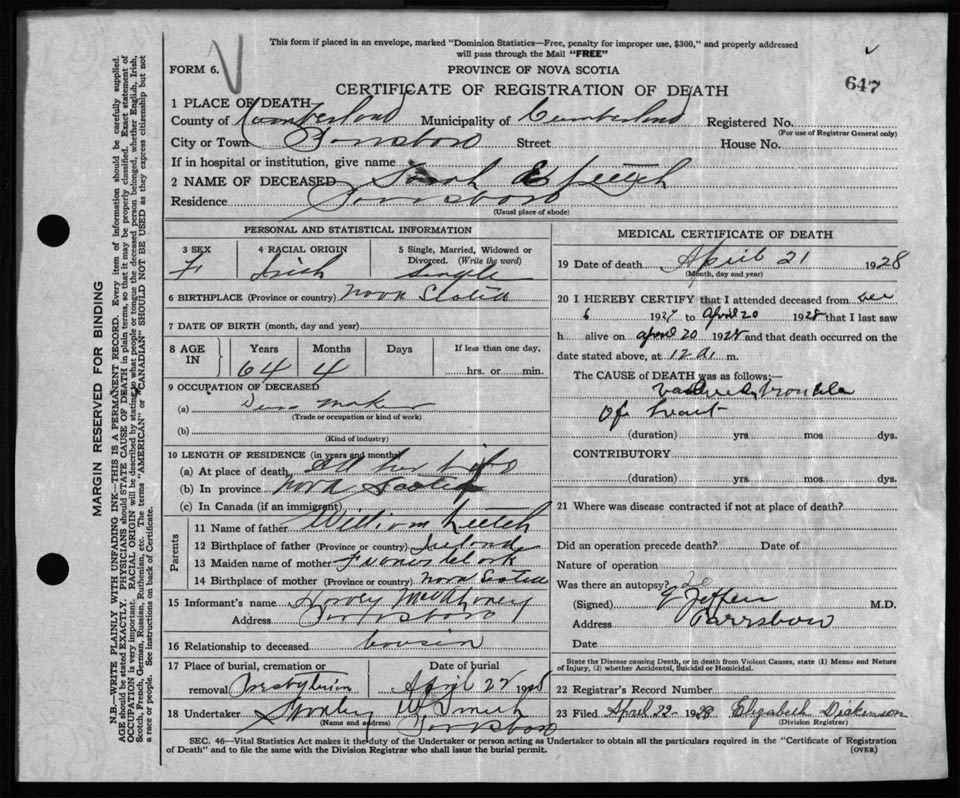 This form if placed in an envelope, marked "Dominion Statistics—Free, penalty for improper use, $300," and properly addressed
will pass through the Mail "FREE"
FORM 6.
PROVINCE OF NOVA SCOTIA
647
CERTIFICATE OF REGISTRATION OF DEATH
1 PLACE OF DEATH
County of Cumberland Municipality of Cumberland Registered No.
(For use of Registrar General only)
City or Town Parrsboro Street House No.
If in hospital or institution, give name
2 NAME OF DECEASED Sarah E Leitch
Residence Parrsboro
(Usual place of abode)
PERSONAL AND STATISTICAL INFORMATION
3 SEX 4 RACIAL ORIGIN 5 Single, Married, Widowed or
Divorced. (Write the word)
F Irish Single
6 BIRTHPLACE (Province or country) Nova Scotia
7 DATE OF BIRTH (month, day and year)
8 AGE IN Years Months Days If less than one day,
64 4 hrs. or min.
9 OCCUPATION OF DECEASED
(a) Dress maker
(Trade or occupation or kind of work)
(b)
(Kind of industry)
10 LENGTH OF RESIDENCE (in years and months)
(a) At place of death All her life
(b) In province Nova Scotia
(c) In Canada (if an immigrant)
Parents
11 Name of father William Leitch
12 Birthplace of father (Province or country) Ireland
13 Maiden name of mother
14 Birthplace of mother (Province or country) Nova Scotia
15 Informant's name Harvey
Address Parrsboro
16 Relationship to deceased cousin
17 Place of burial, cremation or Date of burial
removal Presbyterian April 22 1928
18 Undertaker Stanley W Smith
(Name and address) Parrsboro
MEDICAL CERTIFICATE OF DEATH
19 Date of death April 21 1928
(Month, day and year)
20 I HEREBY CERTIFY that I attended deceased from Dec
6 1927 to April 20 1928 that I last saw
h alive on April 20 1928 and that death occurred on the
date stated above, at 12 A. m.
The CAUSE of DEATH was as follows:—
trouble
of heart
(duration) yrs mos dys.
CONTRIBUTORY
(duration) yrs. mos. dys.
21 Where was disease contracted if not at place of death?
Did an operation precede death? Date of
Nature of operation
Was there an autopsy?
(Signed) M.D.
Address Parrsboro
Date
State the Disease causing Death, or in death from Violent Causes, state (1) Means and Nature
of Injury, (2) whether Accidental, Suicidal or Homicidal.
22 Registrar's Record Number
23 Filed April 22 - 1928 Elizabeth Dickinson
(Division Registrar)
SEC. 46—Vital Statistics Act makes it the duty of the Undertaker or person acting as Undertaker to obtain all the particulars required in the "Certificate of Registration
of Death" and to file the same with the Division Registrar who shall issue the burial permit.
(OVER)
MARGIN RESERVED FOR BINDING
N.B.—WRITE PLAINLY WITH UNFADING INK—THIS IS A PERMANENT RECORD. Every item of information should be carefully supplied.
AGE should be stated EXACTLY. PHYSICIANS should STATE CAUSE OF DEATH in plain terms, so that it may be properly classified. Exact statement of
OCCUPATION is very important. RACIAL ORIGIN will be described by stating to what people or tongue the deceased person belonged, whether English, Irish,
Scotch, French, German, Russian, Ruthenian, etc. The terms "AMERICAN" or "CANADIAN" SHOULD NOT BE USED as they express citizenship but not
a race or people. See instructions on back of Certificate.